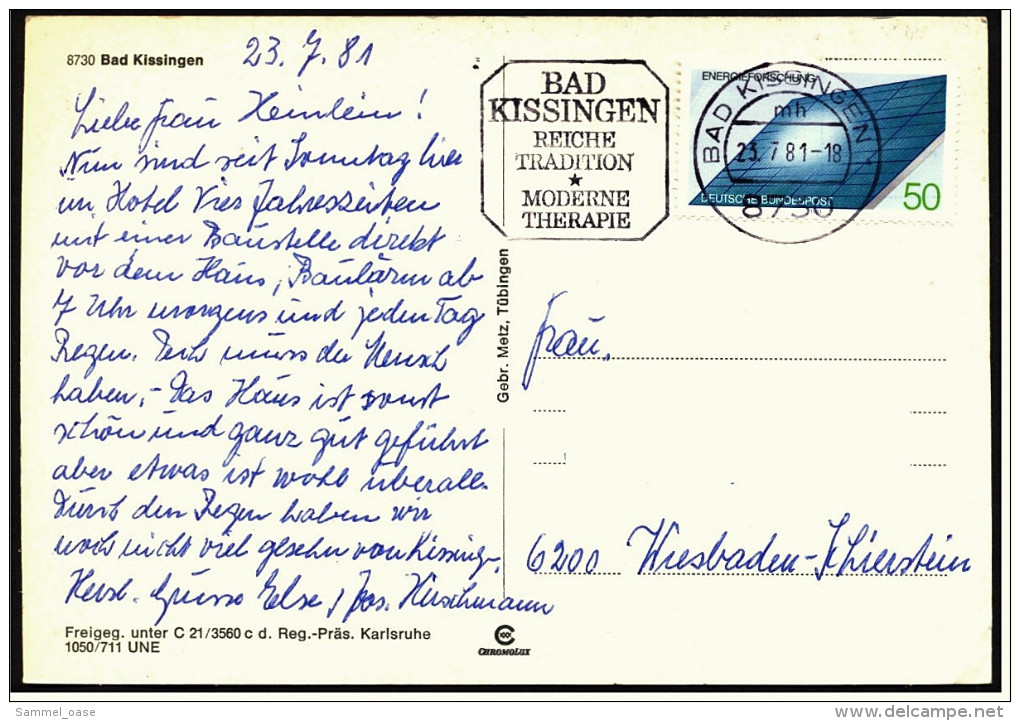 8730 Bad Kissingen
23. 7. 81
Liebe Frau Heinlein!
Nun sind seit Sonntag hier
im Hotel Vier Jahreszeiten
mit einer Baustelle direkt
vor dem Haus, Baulärm ab
7 Uhr morgens und jeden Tag
Regen. muss der Mensch
haben. - Das Haus ist sonst
schön und ganz gut geführt
aber etwas ist wohl überall.
Durch den Regen haben wir
noch nicht viel gesehn von Kissing.
Herzl. Grüsse Else, Jos. Hirschmann
Freigeg. unter C 21/3560 c d. Reg.-Präs. Karlsruhe
1050/711 UNE
Gebr. Metz, Tübingen
CHROMOLUX
BAD
KISSINGEN
REICHE
TRADITION
★
MODERNE
THERAPIE
ENERGIEFORSCHUNG
DEUTSCHE BUNDESPOST
50
BAD KISSINGEN
mh
23. 7 81-18
8730
Frau,
6200 Wiesbaden-Schierstein
Sammel_oase
www.delcampe.net